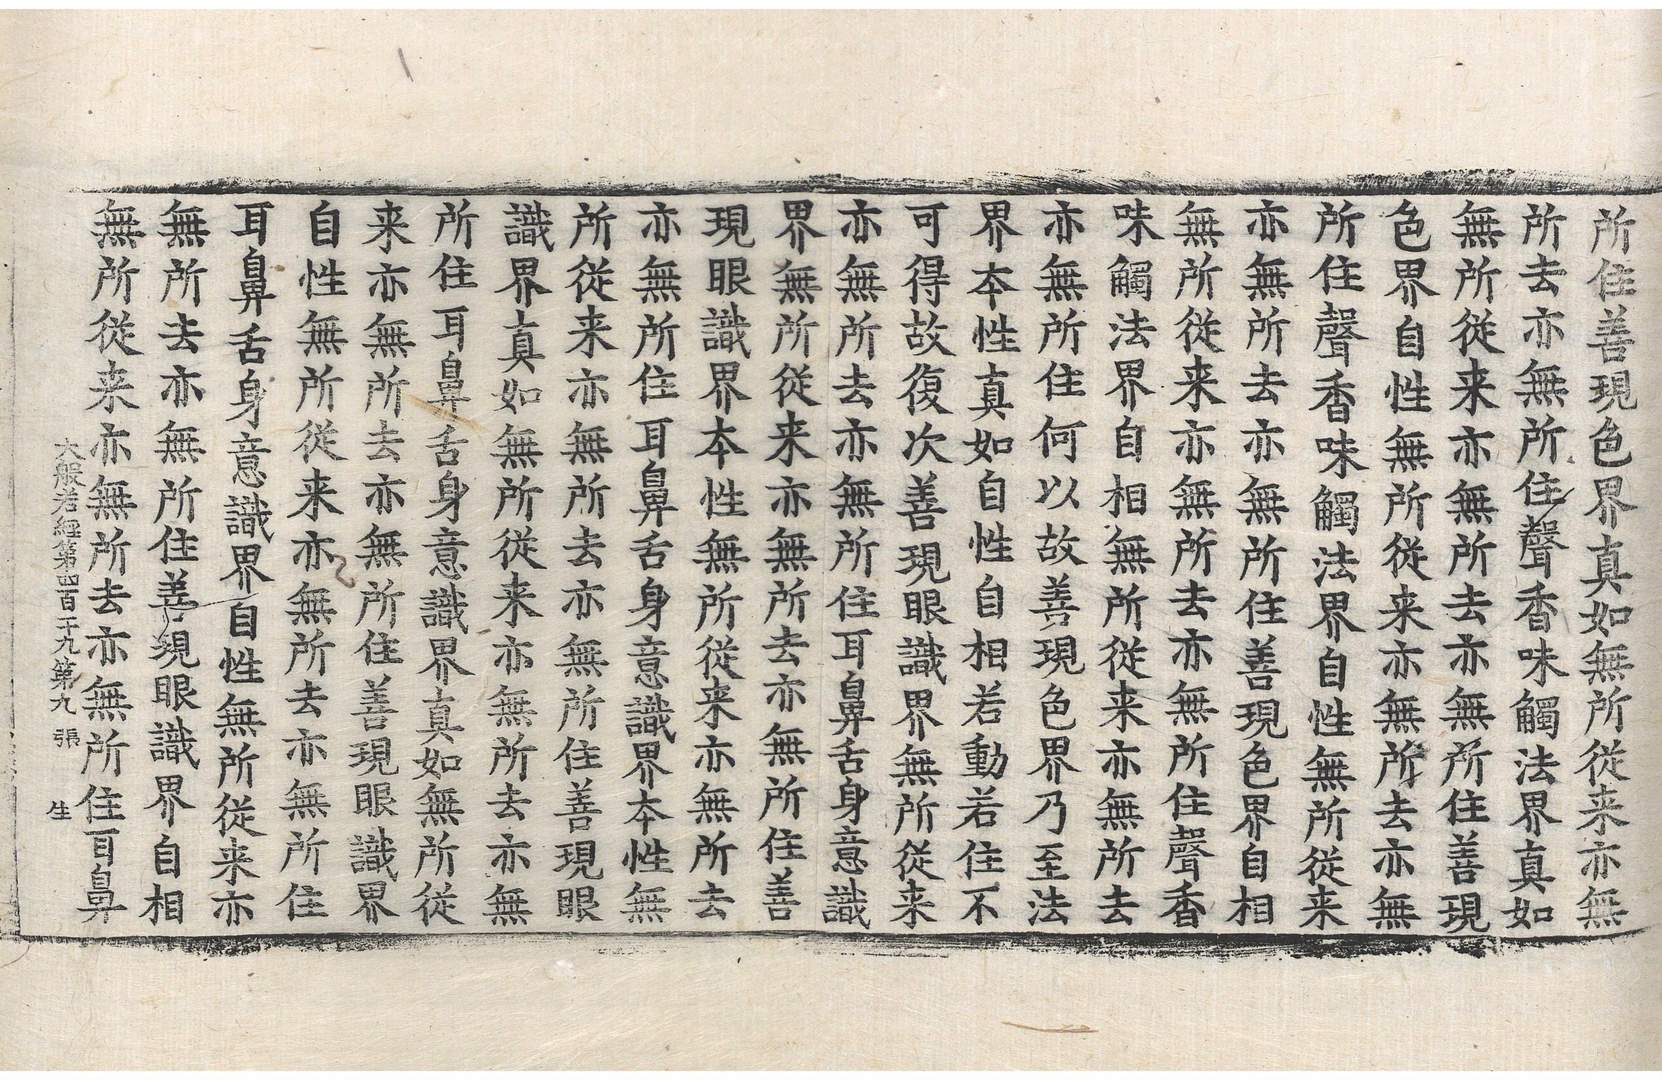 所住善現色界真如無所從来亦無
所去亦無所住聲香味觸法界真如
無所從来亦無所去亦無所住善現
色界自性無所從来亦無所去亦無
所住聲香味觸法界自性無所從来
亦無所去亦無所住善現色界自相
無所從来亦無所去亦無所住聲香
味觸法界自相無所從来亦無所去
亦無所住何以故善現色界乃至法
界本性真如自性自相若動若住不
可得故復次善現眼識界無所從来
亦無所去亦無所住耳鼻舌身意識
界無所從来亦無所去亦無所住善
現眼識界本性無所從来亦無所去
亦無所住耳鼻舌身意識界本性無
所從来亦無所去亦無所住善現眼
識界真如無所從来亦無所去亦無
所住耳鼻舌身意識界真如無所從
来亦無所去亦無所住善現眼識界
自性無所從来亦無所去亦無所住
耳鼻舌身意識界自性無所從来亦
無所去亦無所住善現眼識界自相
無所從来亦無所去亦無所住耳鼻
大般若經第四百十九第九張 生